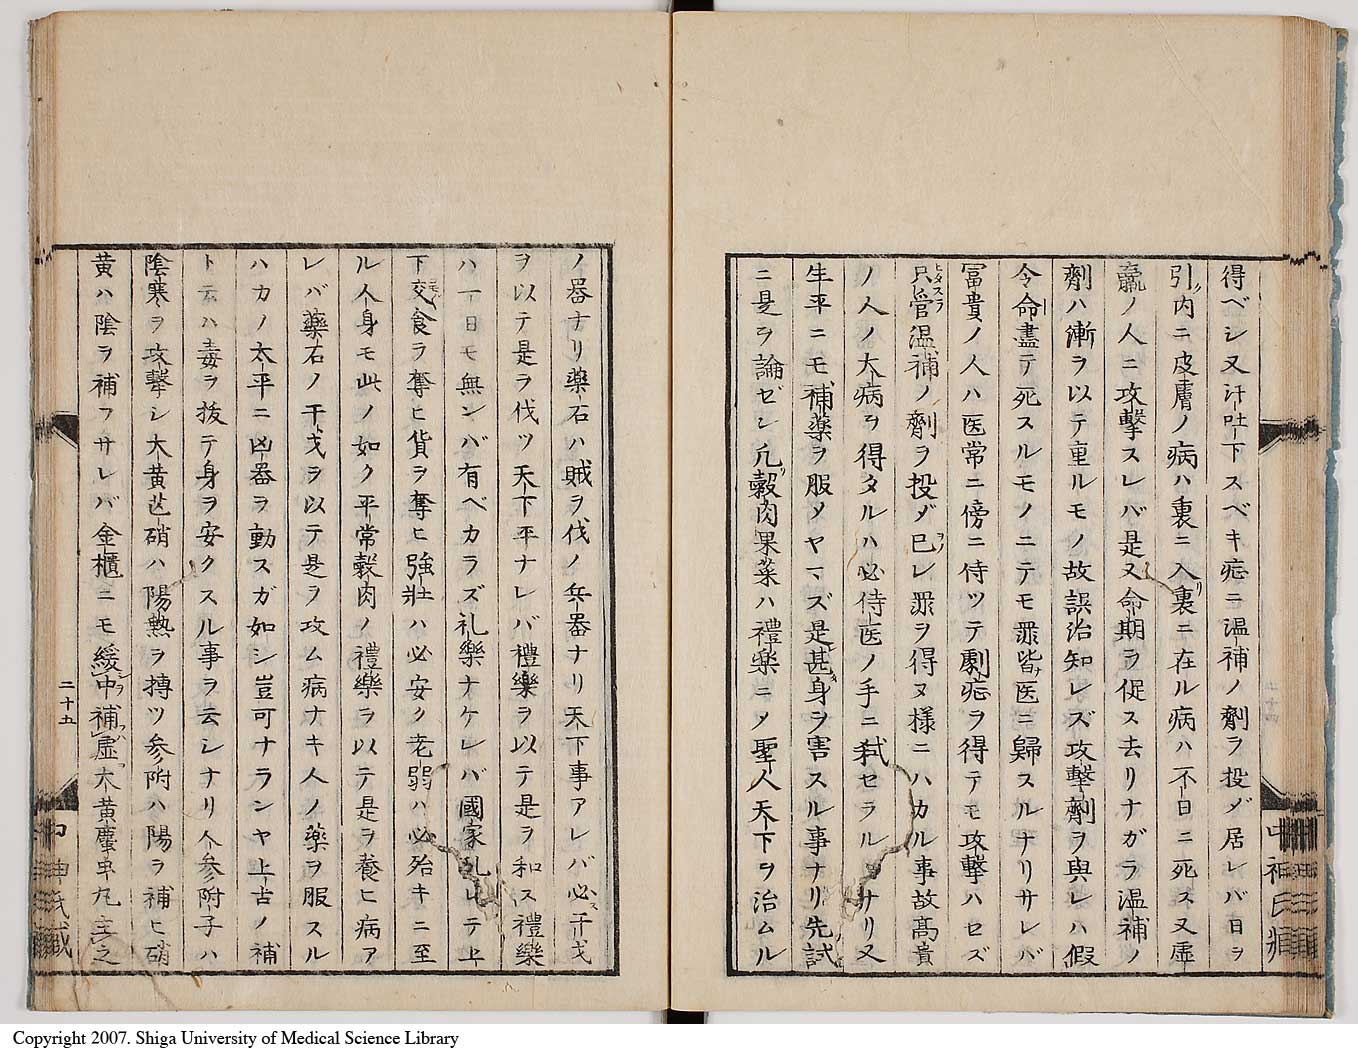 得ベシ又汗吐下スベキ症ニ温補ノ劑ヲ投ゾ居レバ日ヲ
引内ニ皮膚ノ病ハ裏ニ入裏ニ在ル病ハ不日ニ死ス又虚
羸ノ人ニ攻擊スレバ是又命期ヲ促ス去リナガラ温補ノ
劑ハ漸ヲ以テ重ルモノ故誤治知レズ攻擊劑ヲ與レハ假
令命盡テ死スルモノニテモ罪皆医ニ歸スルナリサレバ
冨貴ノ人ハ医常ニ傍ニ侍ツテ劇症ヲ得テモ攻擊ハセズ
只管温補ノ劑ヲ投ゾ已レ罪ヲ得ヌ様ニハカル事故髙貴
ノ人ノ大病ヲ得タルハ必侍医ノ手ニ弑セラルヽナリ又
生平ニモ補薬ヲ服メヤマズ是甚身ヲ害スル事ナリ先試
ニ是ヲ論ゼン凡穀肉果菜ハ禮樂ニメ聖人天下ヲ治ムル
ノ器ナリ薬石ハ賊ヲ伐ノ兵器ナリ天下事アレバ必干戈
ヲ以テ是ヲ伐ツ天下平ナレバ禮樂ヲ以テ是ヲ和ス禮樂
ハ一日モ無ンバ有ベカラズ礼樂ナケレバ國家乱レテ上
下交食ヲ奪ヒ貨ヲ奪ヒ強壯ハ必安ク老弱ハ必殆キニ至
ル人身モ此ノ如ク平常穀肉ノ禮樂ヲ以テ是ヲ養ヒ病ア
レバ藥石ノ干戈ヲ以テ是ヲ攻ム病ナキ人ノ藥ヲ服スル
ハカノ太平ニ凶器ヲ動スガ如シ豈可ナランヤ上古ノ補
ト云ハ毒ヲ抜テ身ヲ安クスル事ヲ云シナリ人参附子ハ
陰寒ヲ攻擊シ大黄芒硝ハ陽熱ヲ搏ツ参附ハ陽ヲ補ヒ硝
黄ハ陰ヲ補フサレバ金櫃ニモ緩中補虚大黄䗪虫丸主之
二十五
Copyright 2007. Shiga University of Medical Science Library